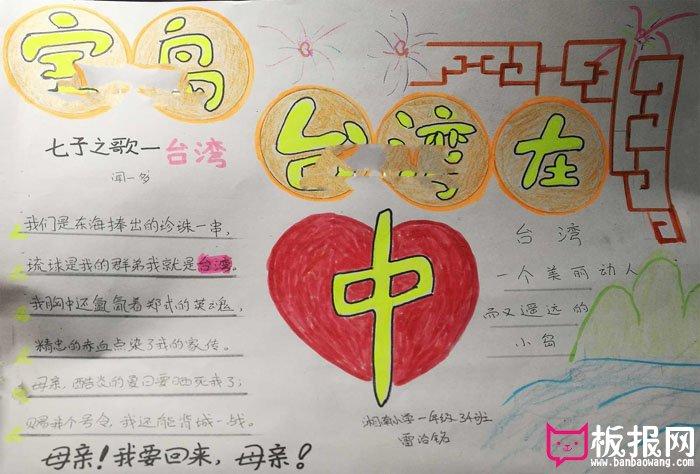 宝岛
台湾在
中
七子之歌—台湾
闻一多
我们是东海捧出的珍珠一串,
琉球是我的群弟我就是台湾。
我胸中还氤氲着郑氏的英魂,
精忠的赤血点染了我的家传。
母亲,酷炎的夏日要晒死我了;
赐我个号令,我还能背城一战。
母亲!我要回来,母亲!
台湾
一个美丽动人
而又遥远的
小岛
小学一年级
板报网
www.banbaowang.com